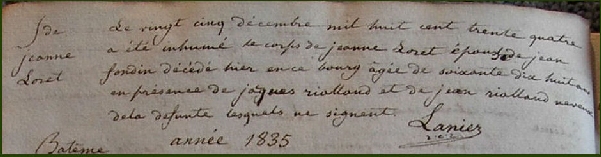 S de Le vingt cinq décembre mil huit cent trente quatre
jeanne a été inhumé le corps de jeanne Loret épouse de jean
Loret décédé hier en ce bourg âgée de soixante dix huit ans
en présence de jaques riolland et de jean riolland neveux
de la defunte lesquels ne signent. Lanier
Batême année 1835